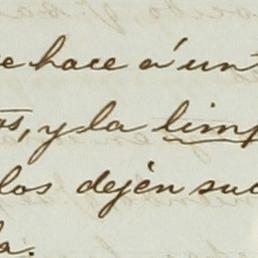 e hace á un
os, y la limp
los dején suc
a.